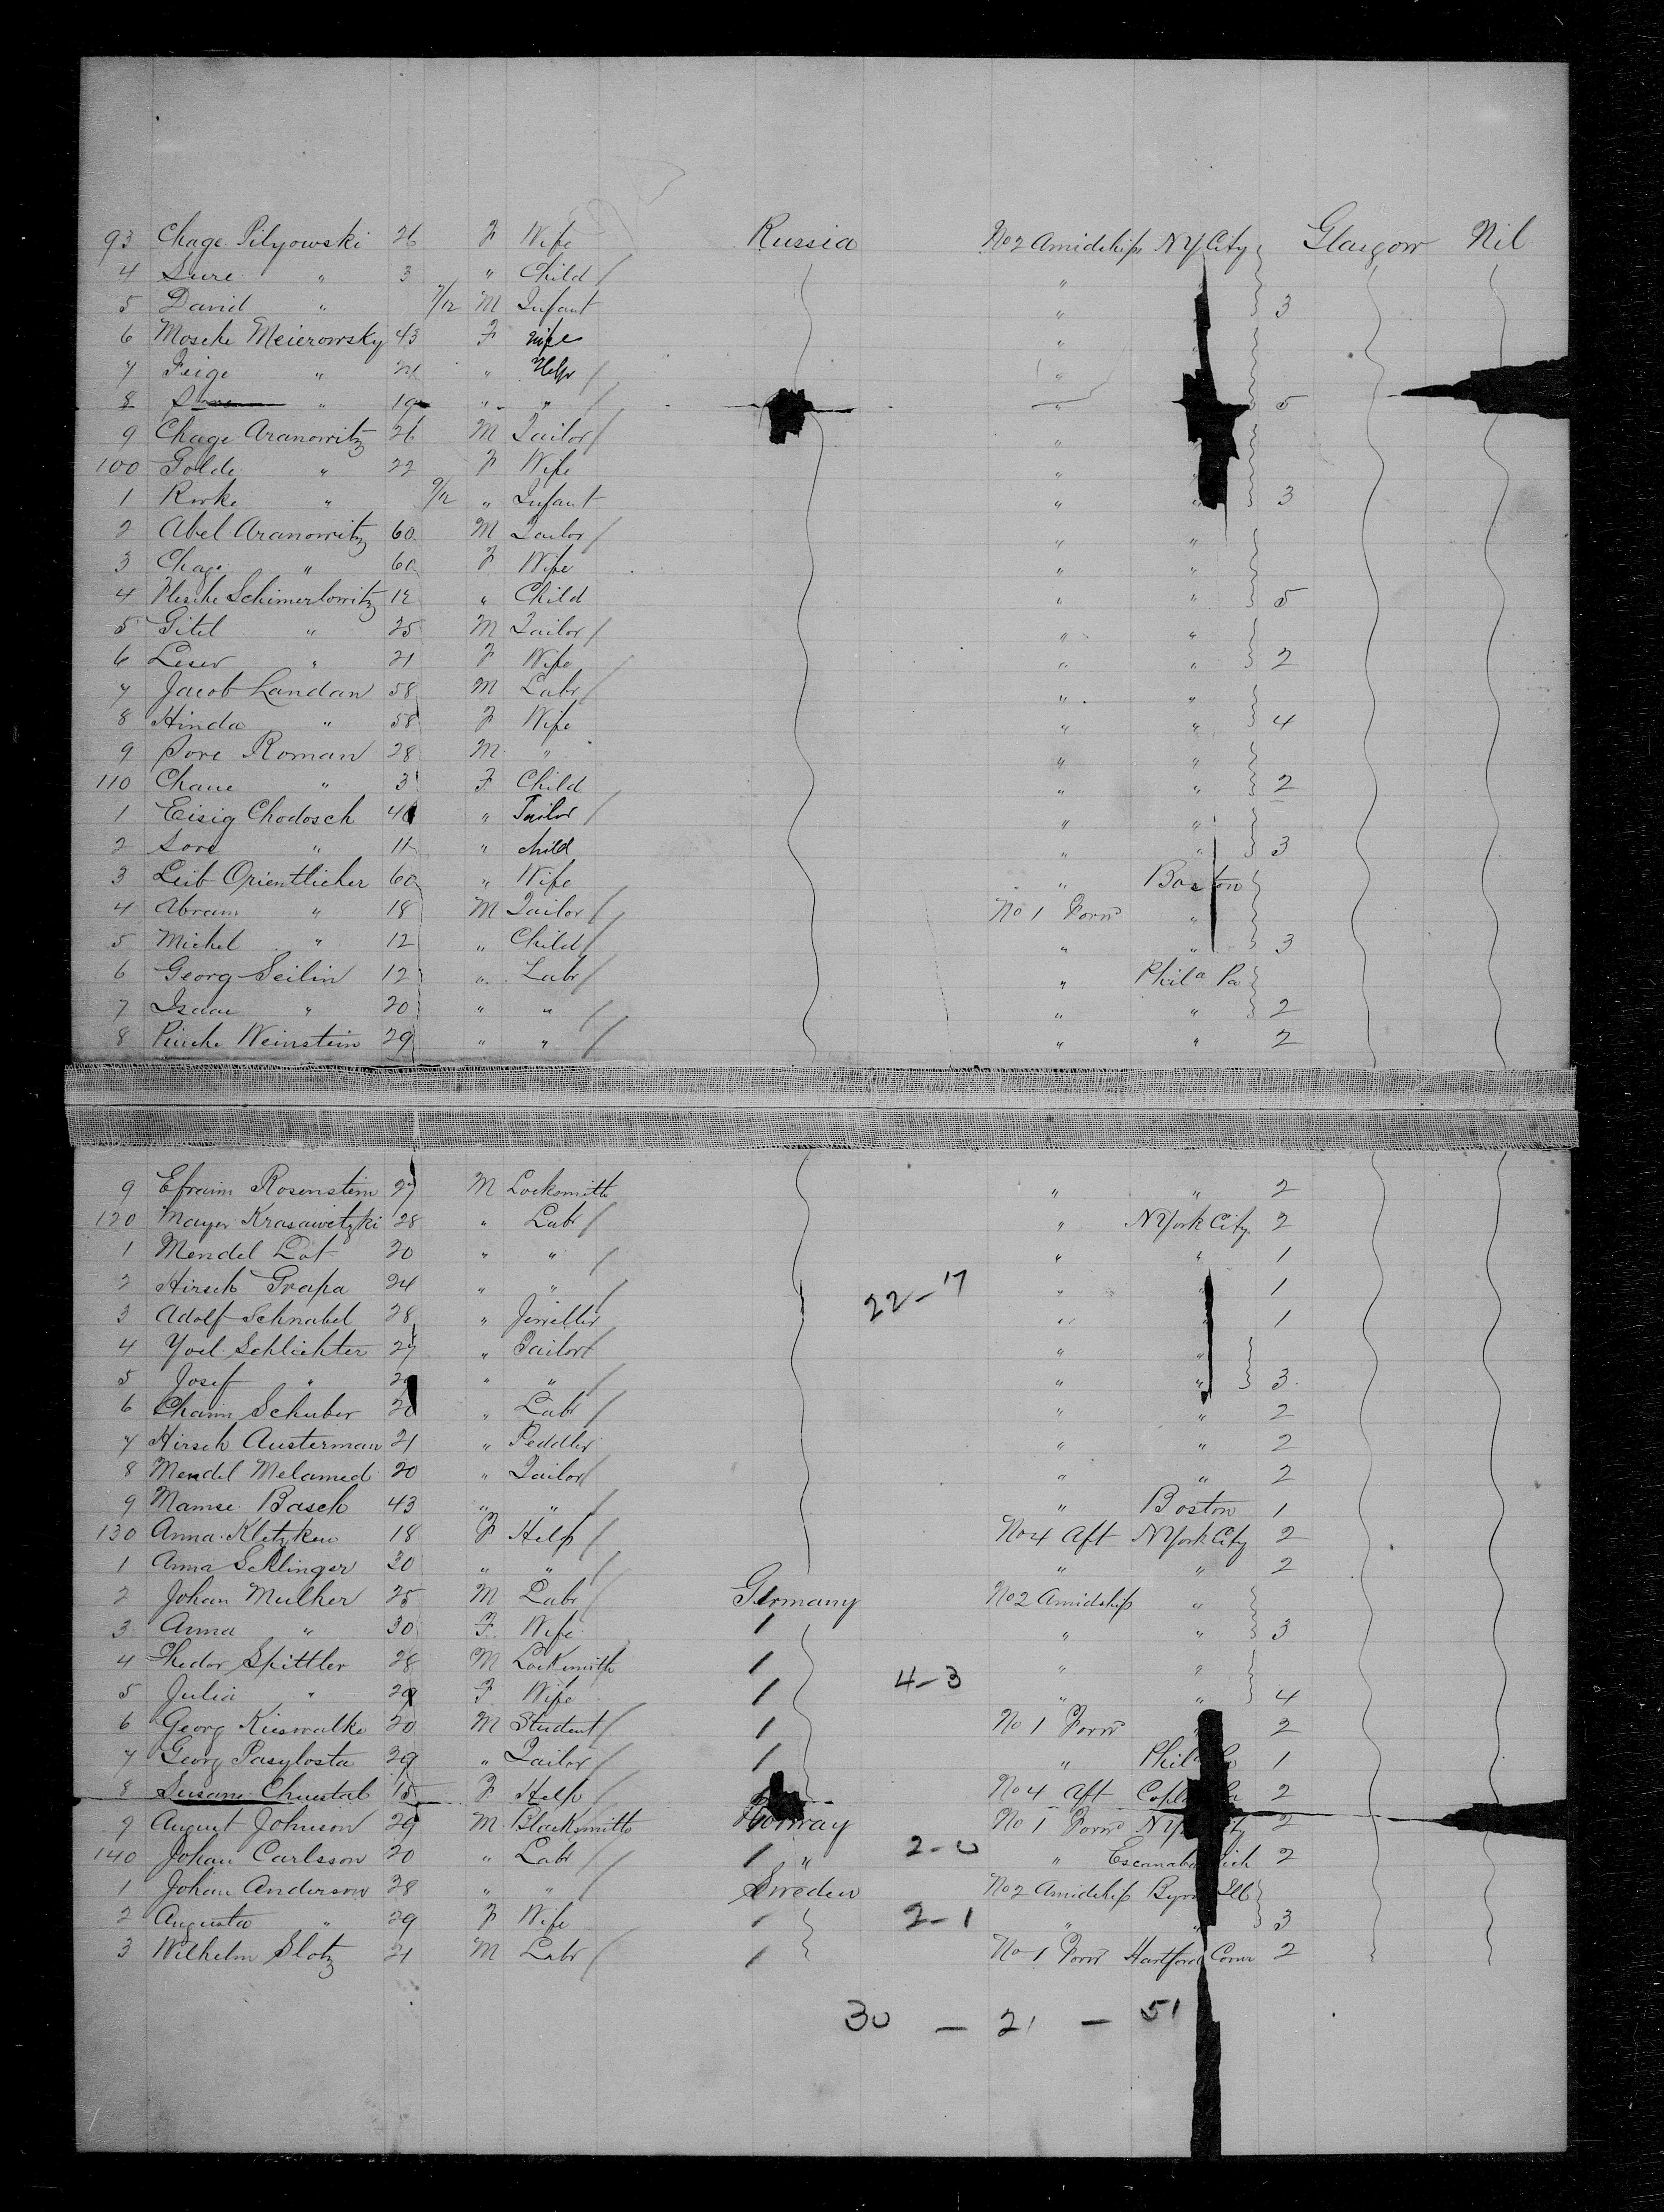 93 Chage Pilyowski 26 F Wife Russia No 2 Amidship NY City Glasgow Nil
4 Sure " 3 " Child "
5 David " 7/12 M Infant " 3
6 Mosche Meierowsky 43 F wife "
7 Feige " " Help "
8 " 19 " " " 5
9 Chage Aranowitz 26 M Tailor "
100 Golde " 22 F Wife "
1 " 9/12 " Infant " " 3
2 Abel Aranowitz 60 M Tailor " "
3 Chage " 60 F Wife " "
4 Schimerlowitz 12 " Child " " 5
5 Gitel " 25 M Tailor " "
6 Leser " 21 F Wife " " 2
7 Jacob Landau 58 M Labr " "
8 Hinda " 58 F Wife " " 4
9 Sore Roman 28 M " " "
110 Chane " 3 F Child " " 2
1 Eisig Chodosch " Tailor " "
2 Sore " 11 " child " " 3
3 Leib Orientlicher 60 " Wife " Boston
4 Abram " 18 M Tailor No 1 Forwd "
5 Michel " 12 " Child " " 3
6 Georg Seilin 12 " Labr " Phila Pa
7 Isaac " 20 " " " " 2
8 Weinstein 29 " " " " 2
9 Efraim Rosenstein 27 M Locksmith " " 2
120 Mayer Krasawitzki 28 " Labr " N York City 2
1 Mendel Lot 20 " " " " 1
2 Hirsch Grapa 24 " " 22-17 " " 1
3 Adolf Schnabel 28 " Jeweller " " 1
4 Yoel Schlichter 27 " Tailor " "
5 Josef " " " " " 3
6 Chaim Schuber " Labr " " 2
7 Hirsch Austerman 21 " Peddler " " 2
8 Mendel Melamed 20 " Tailor " " 2
9 Mamse Basch 43 " " " Boston 1
130 Anna Kletzken 18 F Help No 4 Aft N York City 2
1 Anna Schlinger 30 " " " " 2
2 Johan Mulher 25 M Labr Germany No 2 Amidship "
3 Anna " 30 F Wife " " 3
4 Thedor Spittler 28 M Locksmith " "
5 Julia " 29 F Wife 4-3 " " 4
6 Georg Kieswalke 20 M Student No 1 Forwd 2
7 Georg Pasylosta 29 " Tailor " Phila 1
8 Susane 15 F Help No 4 Aft 2
9 August Johnson 29 M Blacksmith Norway No 1 Forwd 2
140 Johan Carlsson 20 " Labr " 2-0 " 2
1 Johan Anderson 28 " " Sweden No 2 Amidship
2 Augusta " 29 F Wife 2-1 " " 3
3 Wilhelm Slotz 21 M Labr No 1 Forwd Hartford Conn 2
30 - 21 - 51